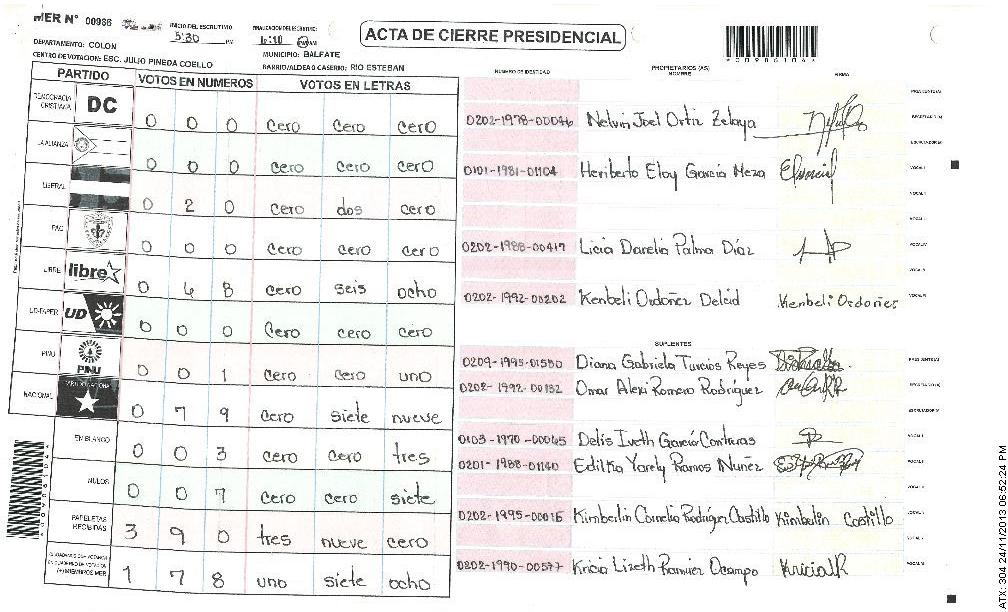 MER N° 00986
INICIO DEL ESCRUTINIO
5:30 PM
FINALIZACION DEL ESCRUTINIO:
6:10 PM
ACTA DE CIERRE PRESIDENCIAL
DEPARTAMENTO: COLON
MUNICIPIO: BALFATE
CENTRO DE VOTACION: ESC. JULIO PINEDA COELLO
BARRIO/ALDEA O CASERIO: RIO ESTEBAN
PARTIDO VOTOS EN NUMEROS VOTOS EN LETRAS
DEMOCRACIA CRISTIANA DC 0 0 0 cero cero cero
LA ALIANZA 0 0 0 cero cero cero
LIBERAL 0 2 0 cero dos cero
PAC 0 0 0 cero cero cero
LIBRE libre 0 6 8 cero seis ocho
UD-FAPER UD 0 0 0 cero cero cero
PINU PINU 0 0 1 cero cero uno
NACIONAL 0 7 9 cero siete nueve
EN BLANCO 0 0 3 cero cero tres
NULOS 0 0 7 cero cero siete
PAPELETAS RECIBIDAS 3 9 0 tres nueve cero
(+) MIEMBROS MER 1 7 8 uno siete ocho
NUMERO DE IDENTIDAD PROPIETARIOS (AS) NOMBRE FIRMA
0202-1978-00046 Nelvin Joel Ortiz Zelaya
0101-1981-01104 Heriberto Eloy Garcia Meza
0202-1988-00417 Licia Darelia Palma Díaz
0202-1992-00202 Kenbeli Ordoñez Delcid Kenbeli Ordoñes
SUPLENTES
0209-1995-01550 Diana Gabriela Turcios Reyes
0202-1992-00132 Omar Alexi Romero Rodríguez
0103-1970-00065 Delis Iveth García Contreras
0201-1988-01140 Edilka Yarely Ramos Nuñez
0202-1995-00016 Kimberlin Cornelia Rodríguez Castillo Kimberlin Castillo
0202-1990-00577 Kricia Lizeth Ramirez Ocampo
ATX: 304 24/11/2013 06:52:24 PM